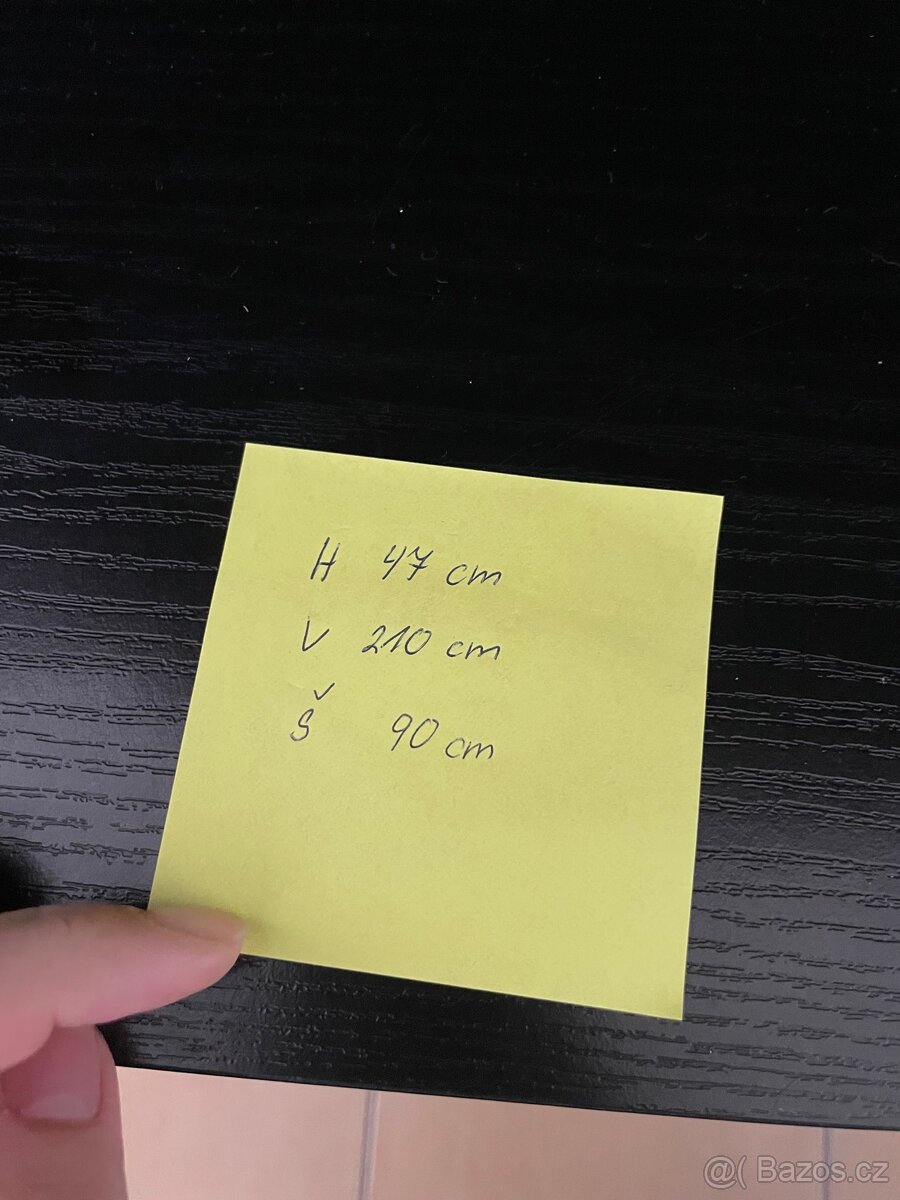 H 47 cm
V 210 cm
Š 90 cm
@( Bazos.cz